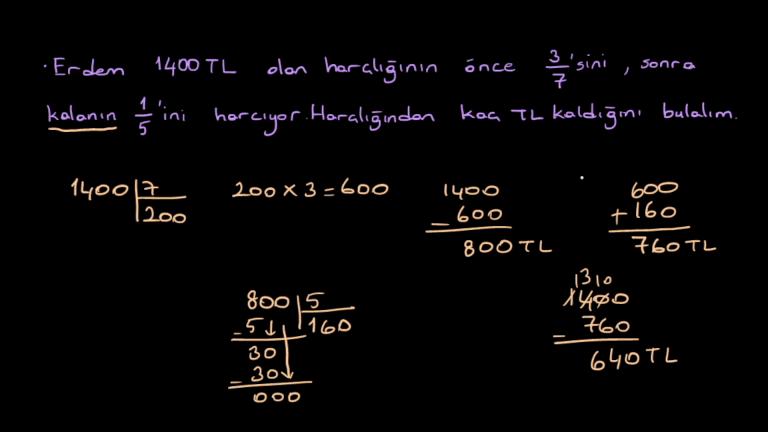 · Erdem 1400 TL olan harçlığının önce 3/7'sini, sonra
kalanın 1/5'ini harcıyor. Harçlığından kaç TL kaldığını bulalım.
1400 | 7
200
200 x 3 = 600
1400
- 600
800 TL
600
+ 160
760 TL
800 | 5
- 5 ↓ 160
30
- 30 ↓
000
13 10
1400
- 760
640 TL